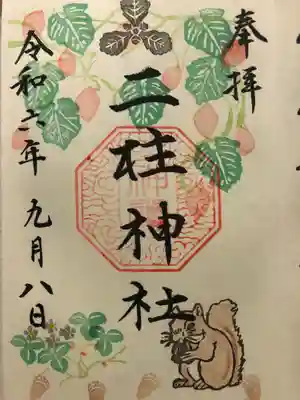 奉拝
二柱神社
令和六年 九月八日